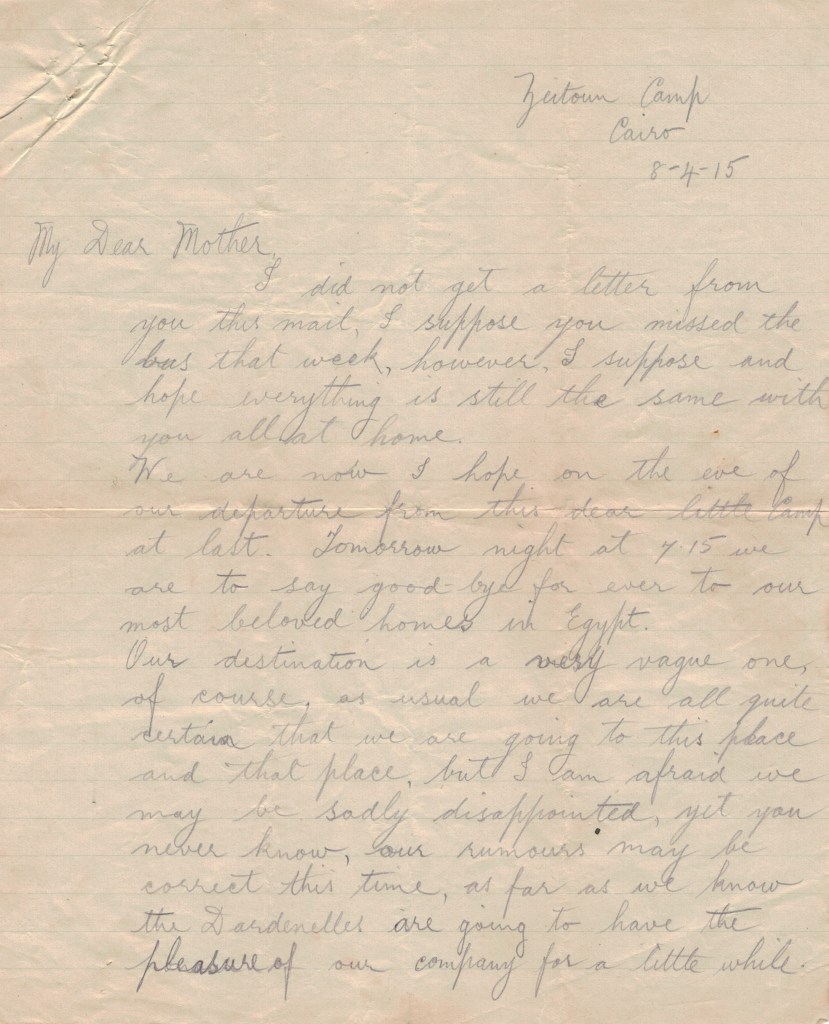 Zeitoun Camp
Cairo
8-4-15
My Dear Mother,
I did not get a letter from
you this mail, I suppose you missed the
bus that week, however, I suppose and
hope everything is still the same with
you all at home.
We are now I hope on the eve of
our departure from this dear little Camp
at last. Tomorrow night at 7.15 we
are to say good-bye for ever to our
most beloved homes in Egypt.
Our destination is a very vague one,
of course, as usual we are all quite
certain that we are going to this place
and that place, but I am afraid we
may be sadly disappointed, yet you
never know, our rumours may be
correct this time, as far as we know
the Dardenelles are going to have the
pleasure of our company for a little while.